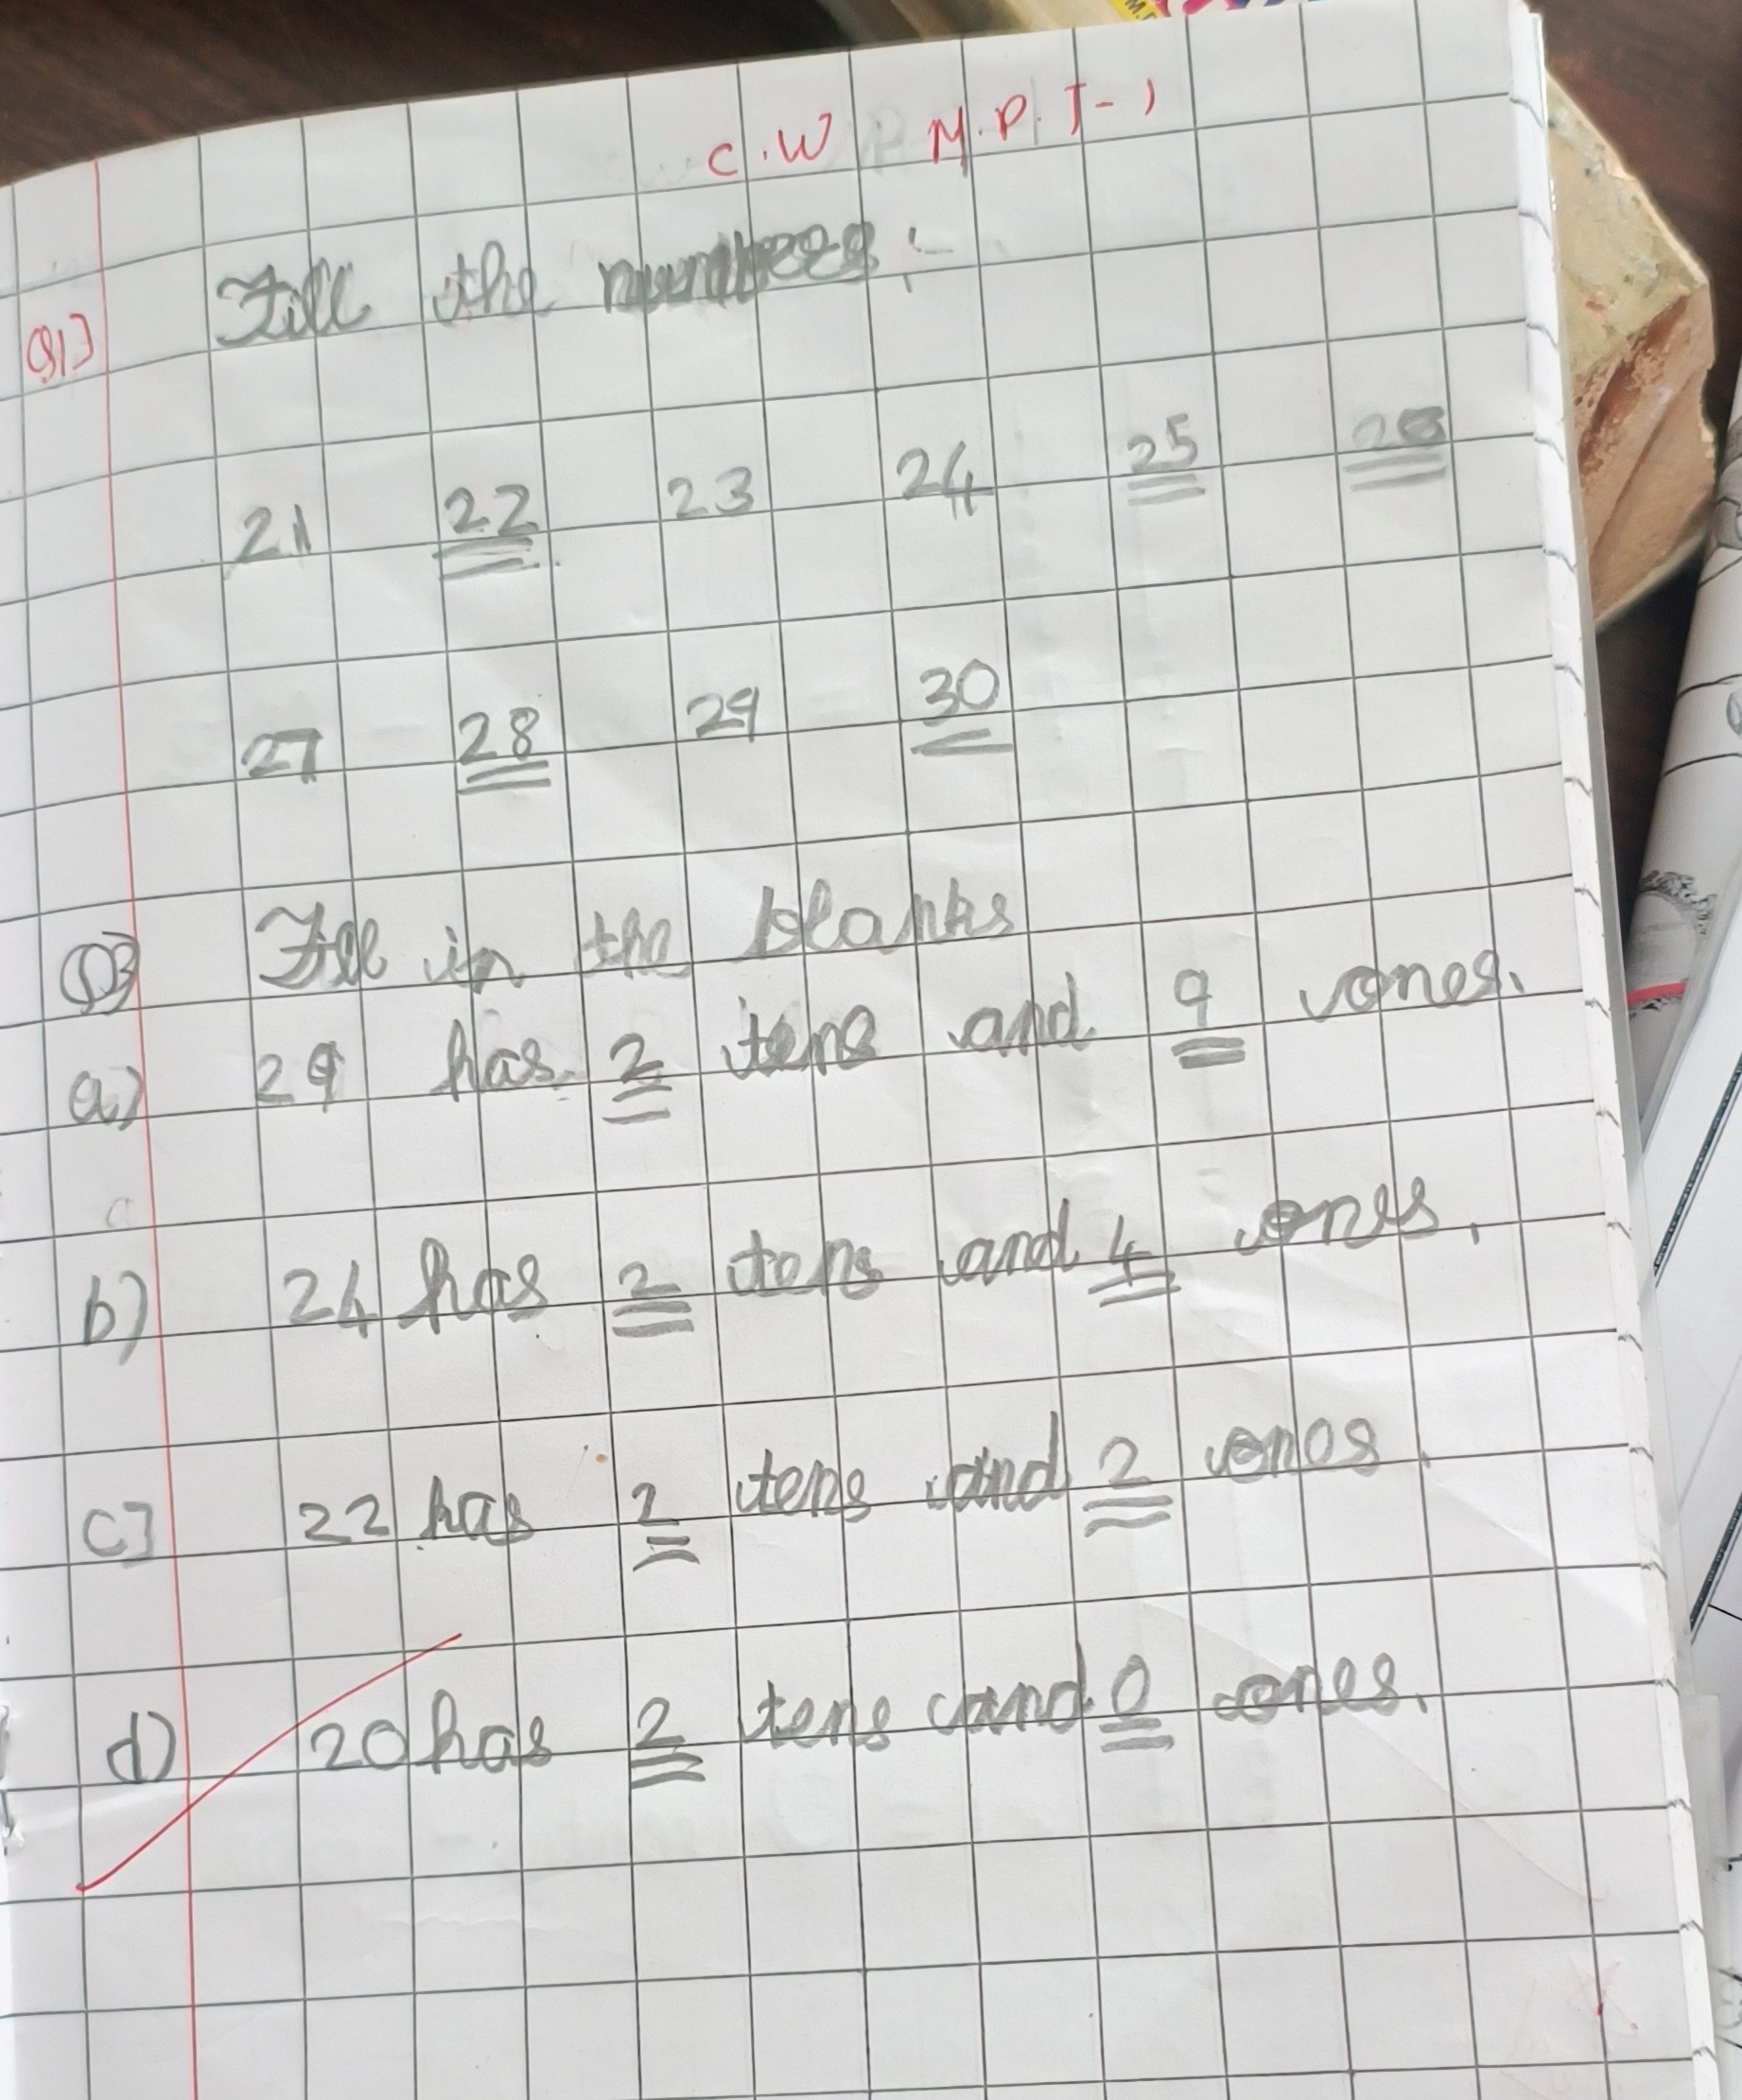 C.W M.P.T-1
Q1] Fill the numbers:-
21 22 23 24 25 26
27 28 29 30
Q3] Fill in the blanks
a) 29 has 2 tens and 9 ones.
b) 24 has 2 tens and 4 ones.
c] 22 has 2 tens and 2 ones
d) 20 has 2 tens and 0 ones.